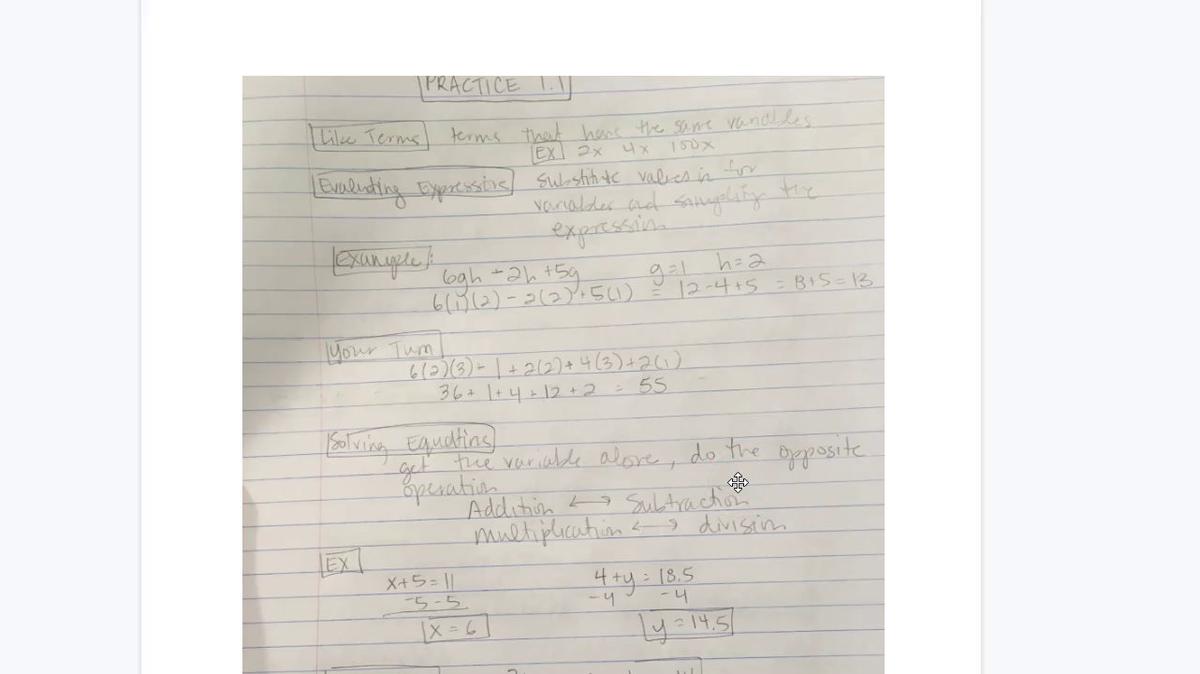 PRACTICE 1.1
Like Terms terms that have the same variables
EX 2x 4x 100x
Evaluating Expressions substitute values in for
variables and simplify the
expression
Example:
6gh - 2h + 5g g=1 h=2
6(1)(2) - 2(2) + 5(1) = 12-4+5 = 8+5 = 13
Your Turn
6(2)(3) - 1 + 2(2) + 4(3) + 2(1)
36 + 1 + 4 + 12 + 2 = 55
Solving Equations
get the variable alone, do the opposite
operation
Addition ↔ Subtraction
multiplication ↔ division
EX
x+5=11 4+y=18.5
-5 -5 -4 -4
x=6 y=14.5